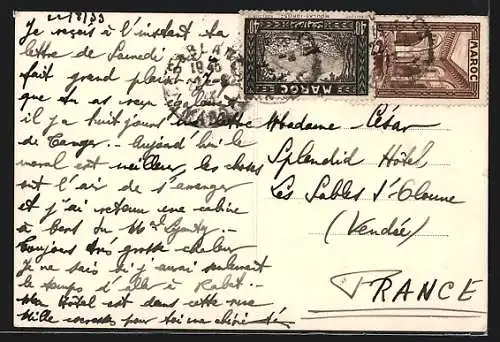 22/8/33
Je reçois à l'instant ta
lettre de Samedi qui me
fait grand plaisir
que tu as reçu également
il y a huit jours ma lettre
de Tanger — Aujourd'hui le
moral est meilleur, les choses
ont l'air de s'arranger
et j'ai retenu une cabine
à bord du Mal Lyautey.
Toujours très grosse chaleur
Je ne sais si j'aurai seulement
le temps d'aller à Rabat..
Mon Hôtel est dans cette rue
Mille caresses pour toi ma chérie
MAROC
MAROC
Madame César
Splendid Hôtel
Les Sables d'Olonne
(Vendée)
FRANCE